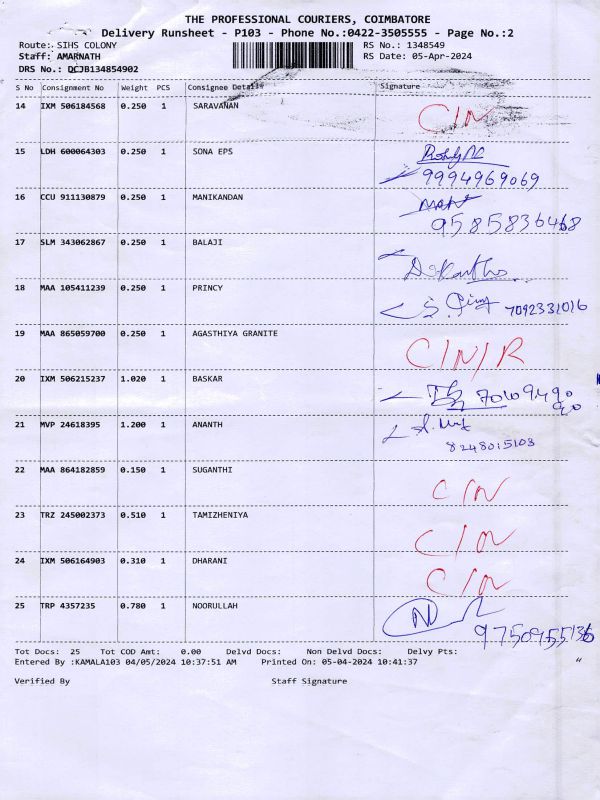 THE PROFESSIONAL COURIERS, COIMBATORE
Delivery Runsheet - P103 - Phone No.:0422-3505555 - Page No.:2
Route: SIHS COLONY RS No.: 1348549
Staff: AMARNATH RS Date: 05-Apr-2024
DRS No.: DCJB134854902
S No Consignment No Weight PCS Consignee Details Signature
14 IXM 506184568 0.250 1 SARAVANAN C/N
15 LDH 600064303 0.250 1 SONA EPS
9994969069
16 CCU 911130879 0.250 1 MANIKANDAN
9585836468
17 SLM 343062867 0.250 1 BALAJI
18 MAA 105411239 0.250 1 PRINCY 7092331016
19 MAA 865059700 0.250 1 AGASTHIYA GRANITE C/N/R
20 IXM 506215237 1.020 1 BASKAR
21 MVP 24618395 1.200 1 ANANTH
8248015103
22 MAA 864182859 0.150 1 SUGANTHI C/N
23 TRZ 245002373 0.510 1 TAMIZHENIYA C/N
24 IXM 506164903 0.310 1 DHARANI C/N
25 TRP 4357235 0.780 1 NOORULLAH
Tot Docs: 25 Tot COD Amt: 0.00 Delvd Docs: Non Delvd Docs: Delvy Pts:
Entered By :KAMALA103 04/05/2024 10:37:51 AM Printed On: 05-04-2024 10:41:37
Verified By Staff Signature